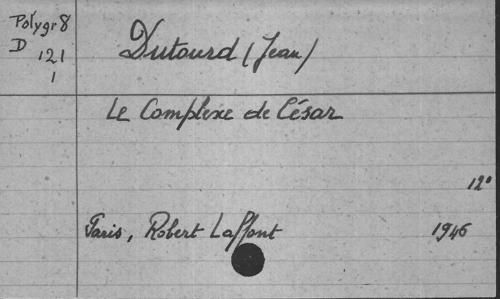 Polygr 8
D 121
1
Dutourd (Jean)
Le Complexe de César
12°
Paris, Robert Laffont 1946